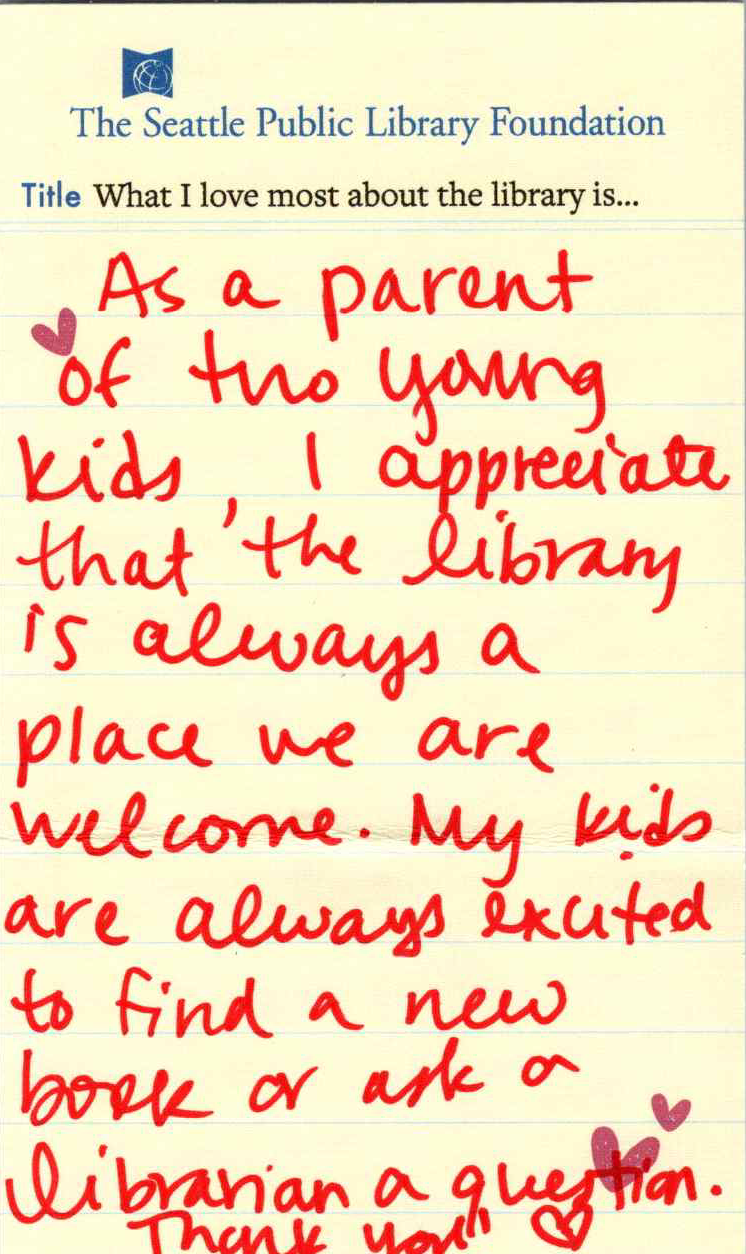 The Seattle Public Library Foundation
Title What I love most about the library is...
As a parent
of two young
kids, I appreciate
that the library
is always a
place we are
welcome. My kids
are always excited
to find a new
book or ask a
librarian a question.
Thank you!!